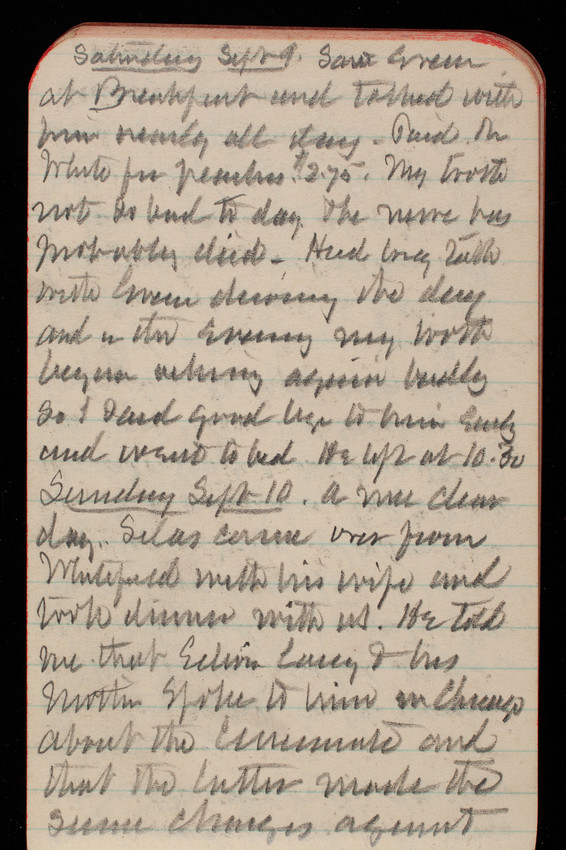 Saturday Sept 9. Saw Green
at Breakfast and talked with
him nearly all day - Paid Mr
White for peaches $2.75. My tooth
not so bad to day. The nerve has
probably died - Had long talk
with Green during the day
and in the Evening my tooth
began aching again badly
So I said good bye to him Early
and went to bed. He left at 10.30
Sunday Sept 10. A nice clear
day. Silas came over from
Whitefield with his wife and
took dinner with us. He told
me that Edwin Lacey & his
Mother Spoke to him in Chicago
about the and
that the latter made the
same charges against